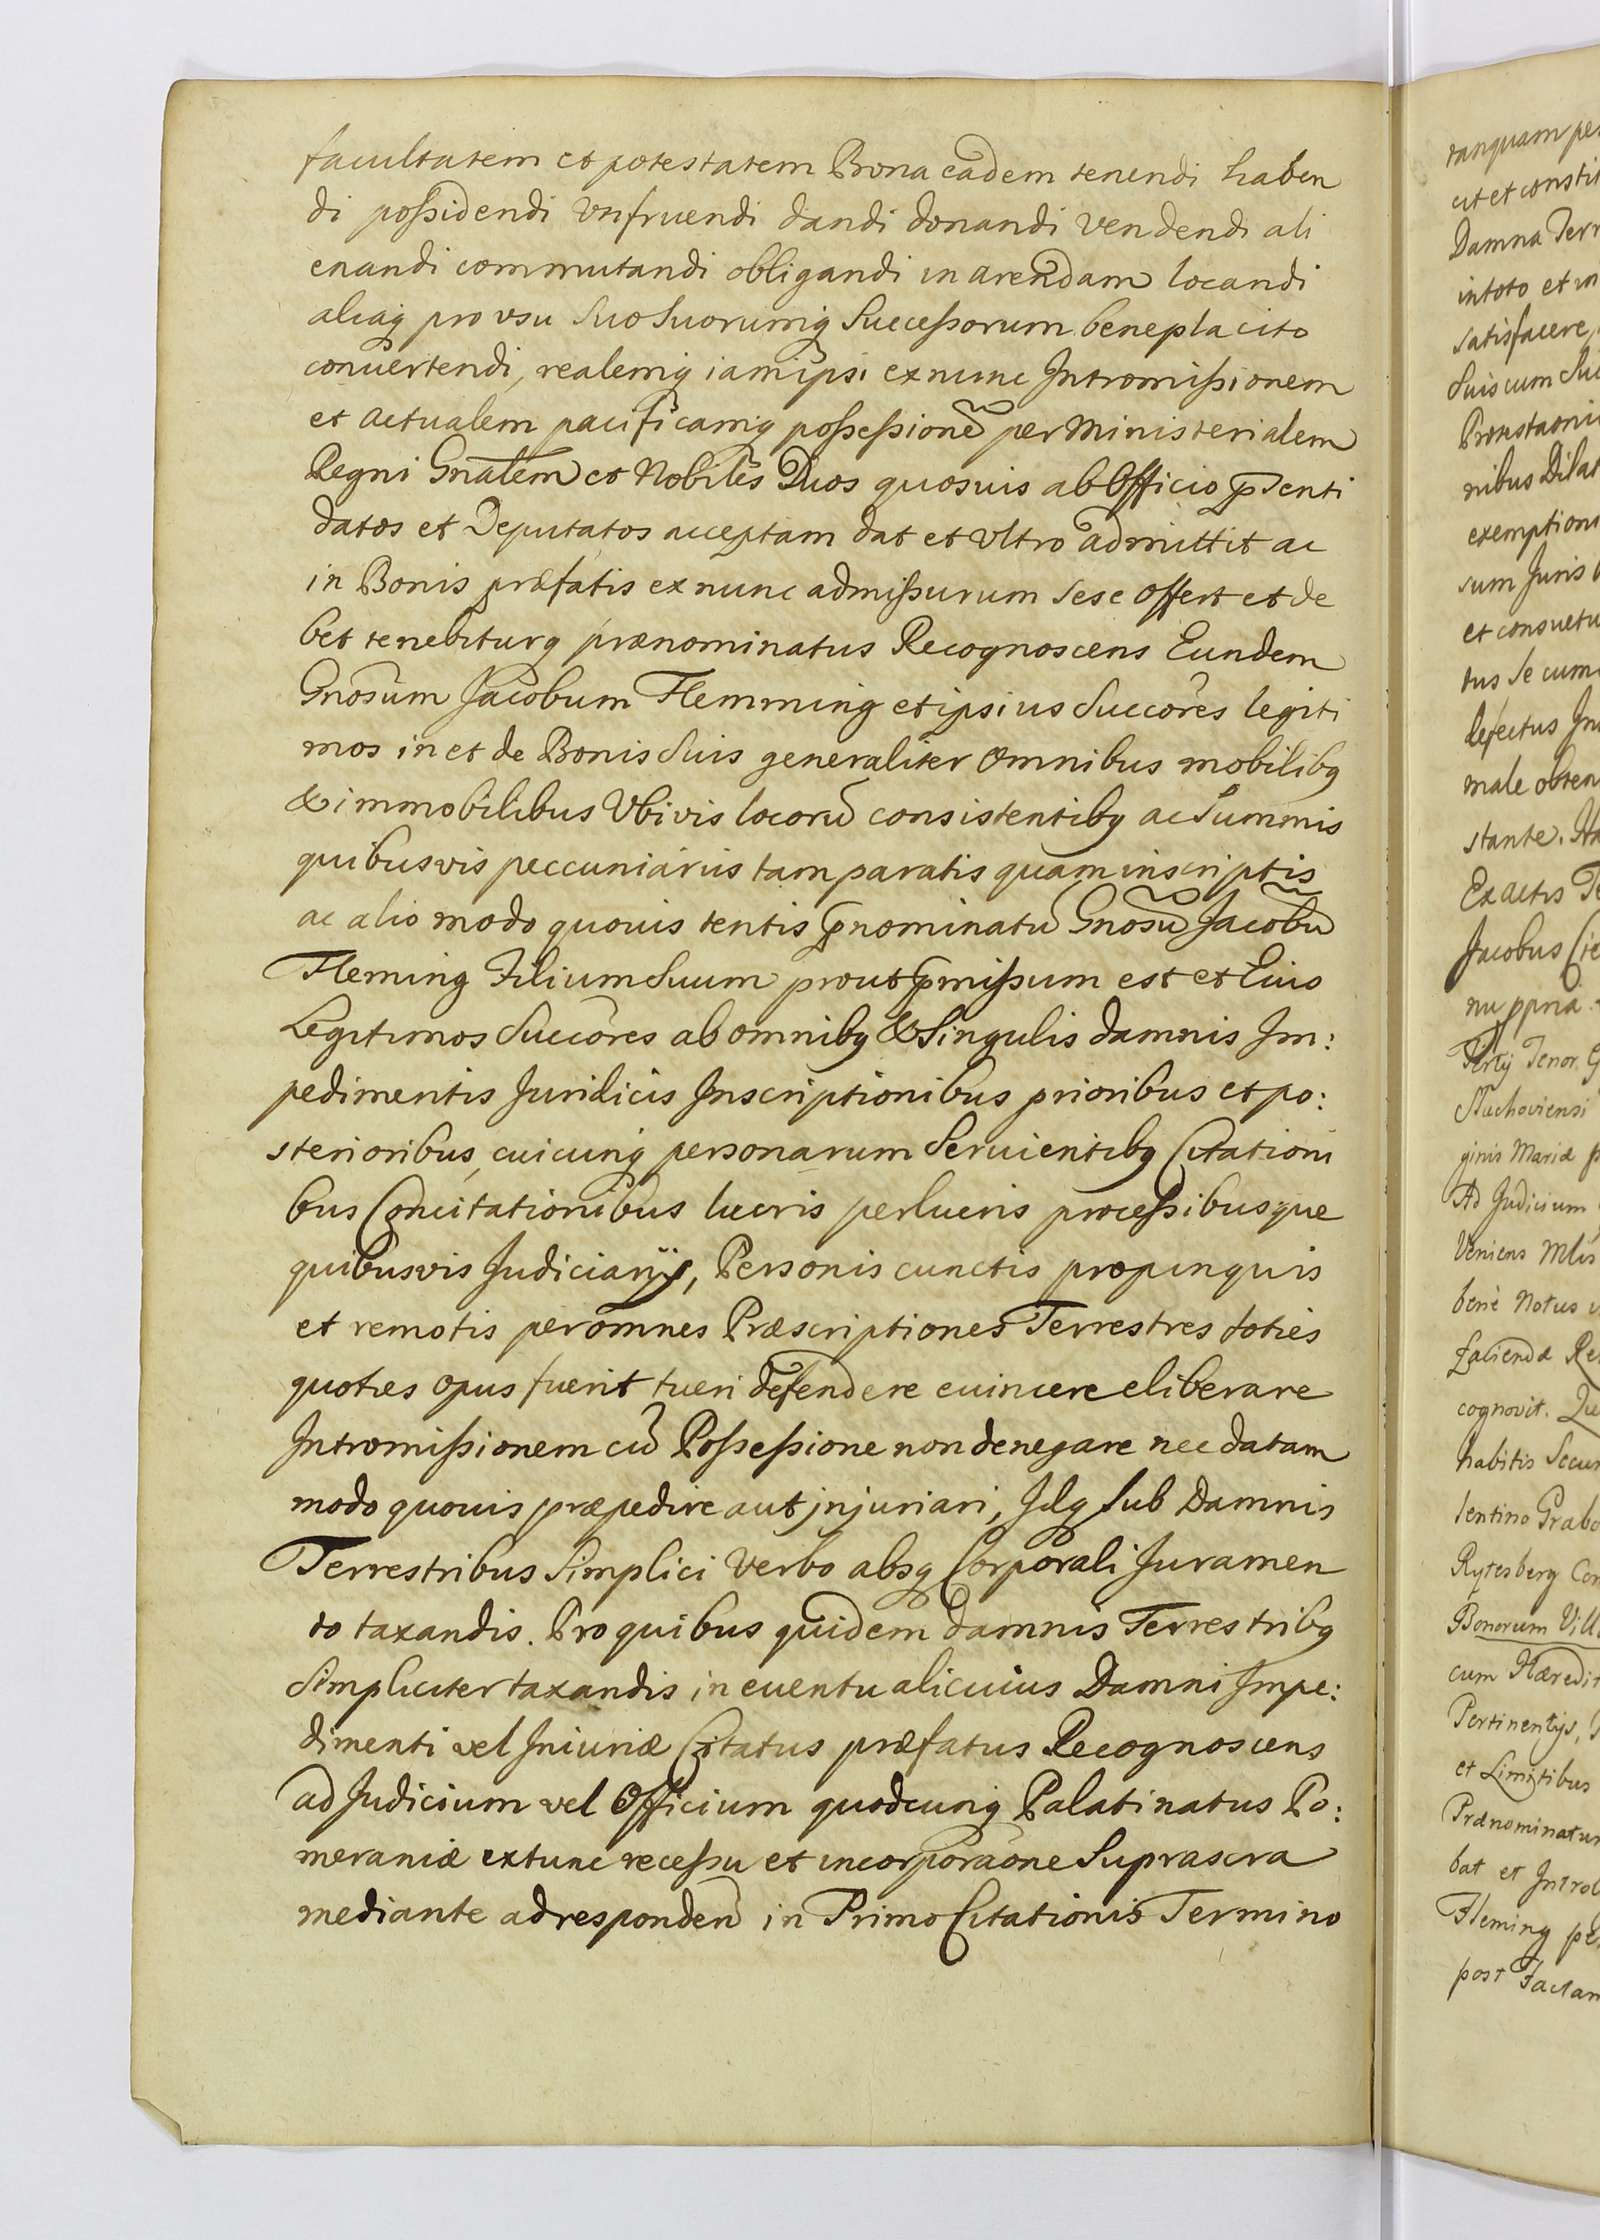 facultatem et potestatem Bona eadem tenendi haben
di poßidendi Vnfruendi dandi donandi vendendi ali
enandi commutandi obligandi in arendam locandi
aliaq pro vsu Suo Suorumq Succeßorum beneplacito
conuertendi, realemq iam ipsi ex nunc Intromißionem
et actualem pacificamq poßeßionẽ per Ministerialem
Regni Gnalem et Nobiles Duos quosuis ab Officio p̄senti
datos et Deputatos acceptam dat et Vltro admittit ac
in Bonis præfatis ex nunc admißurum sese offert et de
bet tenebiturq prænominatus Recognoscens Eundem
Gnosum Jacobum Flemming et ipsius Succores legiti
mos in et de Bonis Suis generaliter Omnibus mobilibq
& immobilibus Vbivis locorũ consistentibq ac Summis
quibusvis peccuniariis tam paratis quam inscriptis
ac alio modo quouis tentis p̄nominatũ Gnosũ Jacobũ
Fleming Filium Suum prout p̄mißum est et Eius
Legitimos Succores ab omnibq & Singulis damnis Im:
pedimentis Juridicis Inscriptionibus prioribus et po:
sterioribus, cuicunq personarum Seruientibq Citationi
bus Concitationibus lucris perlucris proceßibusque
quibusvis Judiciarijs, Personis cunctis propinquis
et remotis per omnes Præscriptiones Terrestres toties
quoties opus fuerit tueri defendere euincere eliberare
Intromißionem cũ Poßeßione non denegare nec datam
modo quouis præpedire aut injuriari, Idq sub Damnis
Terrestribus Simplici Verbo absq Corporali Juramen
to taxandis. Pro quibus quidem damnis Terrestribq
Simpliciter taxandis in euentu alicuius Damni Impe:
dimenti vel Iniuriæ Citatus præfatus Recognoscens
ad Judicium vel Officium quodcunq Palatinatus Po:
meraniæ extunc receßu et incorporaone Suprascra
mediante ad respondenũ in Primo Citationis Termino
tanquam
et consti
Damna Terr
in toto et in
satisfacere,
Suis cum
nibus Dilat
exemption
sum Juris
et consuetu
tus se cum
defectus
male obten
stante.
Exactis
Jacobus
nu ppria
Tertij Tenor
ginis Mariæ
Ad Judicium
Veniens Mlis
bene Notus
cognovit.
habitis Secu
lentino Grabo
Rytesberg
Bonorum Vill
cum Hæredit
Pertinentijs,
et Limitibus
Prænominatu
bat et Introl
Fleming
post Factam